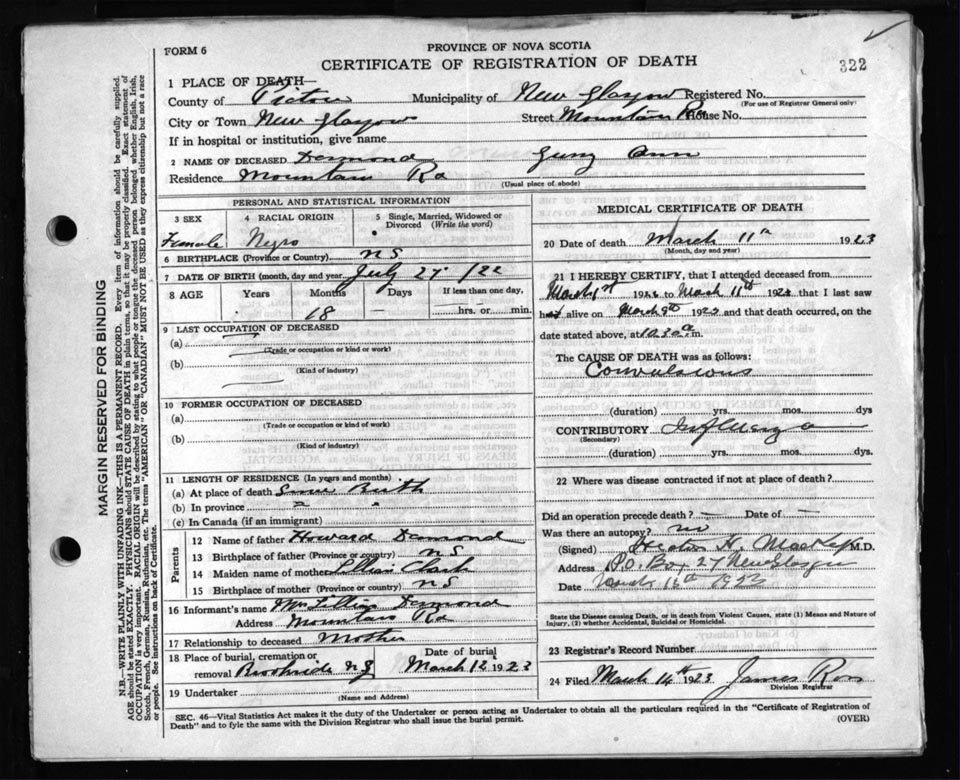 FORM 6
PROVINCE OF NOVA SCOTIA
CERTIFICATE OF REGISTRATION OF DEATH
322
1 PLACE OF DEATH—
County of Pictou Municipality of New Glasgow Registered No.
(For use of Registrar General only)
City or Town New Glasgow Street Mountain Rd House No.
If in hospital or institution, give name
2 NAME OF DECEASED Desmond Ann
Residence Mountain Rd
(Usual place of abode)
PERSONAL AND STATISTICAL INFORMATION
3 SEX 4 RACIAL ORIGIN 5 Single, Married, Widowed or Divorced (Write the word)
Female Negro
6 BIRTHPLACE (Province or Country) NS
7 DATE OF BIRTH (month, day and year) July 27 /22
8 AGE Years Months Days If less than one day,
18 hrs. or min.
9 LAST OCCUPATION OF DECEASED
(a)
(Trade or occupation or kind or work)
(b)
(Kind of industry)
10 FORMER OCCUPATION OF DECEASED
(a)
(Trade or occupation or kind or work)
(b)
(Kind of industry)
11 LENGTH OF RESIDENCE (In years and months)
(a) At place of death Since Birth
(b) In province " "
(c) In Canada (if an immigrant)
Parents
12 Name of father Howard Desmond
13 Birthplace of father (Province or country) NS
14 Maiden name of mother Lillian Clark
15 Birthplace of mother (Province or country) NS
16 Informant's name Mrs Lillian Desmond
Address Mountain Rd
17 Relationship to deceased Mother
18 Place of burial, cremation or removal Brookside N.G. Date of burial March 12 1923
19 Undertaker
(Name and Address)
MEDICAL CERTIFICATE OF DEATH
20 Date of death March 11th 1923
(Month, day and year)
21 I HEREBY CERTIFY, that I attended deceased from
March 1st 192 to March 11th 192 that I last saw
alive on March 192 and that death occurred, on the
date stated above, at 10.30 a.m.
The CAUSE OF DEATH was as follows:
Convulsions
(duration) yrs. mos. dys
CONTRIBUTORY Influenza
(Secondary)
(duration) yrs. mos. dys.
22 Where was disease contracted if not at place of death?
Did an operation precede death? — Date of —
Was there an autopsy? no
(Signed) M.D.
Address P.O. Box 27 New Glasgow
Date March 16th
State the Disease causing Death, or in death from Violent Causes, state (1) Means and Nature of Injury, (2) whether Accidental, Suicidal or Homicidal.
23 Registrar's Record Number
24 Filed March 14th 1923 James Ross
Division Registrar
SEC. 46—Vital Statistics Act makes it the duty of the Undertaker or person acting as Undertaker to obtain all the particulars required in the "Certificate of Registration of
Death" and to fyle the same with the Division Registrar who shall issue the burial permit.
(OVER)
MARGIN RESERVED FOR BINDING
N.B.—WRITE PLAINLY WITH UNFADING INK—THIS IS A PERMANENT RECORD. Every item of information should be carefully supplied.
AGE should be stated EXACTLY. PHYSICIANS should STATE CAUSE OF DEATH in plain terms, so that it may be properly classified. Exact statement of
OCCUPATION is very important. RACIAL ORIGIN will be described by stating to what people or tongue the deceased person belonged whether English, Irish,
Scotch, French, German, Russian, Ruthenian, etc. The terms "AMERICAN" OR "CANADIAN" MUST NOT BE USED as they express citizenship but not a race
or people. See instructions on back of Certificate.